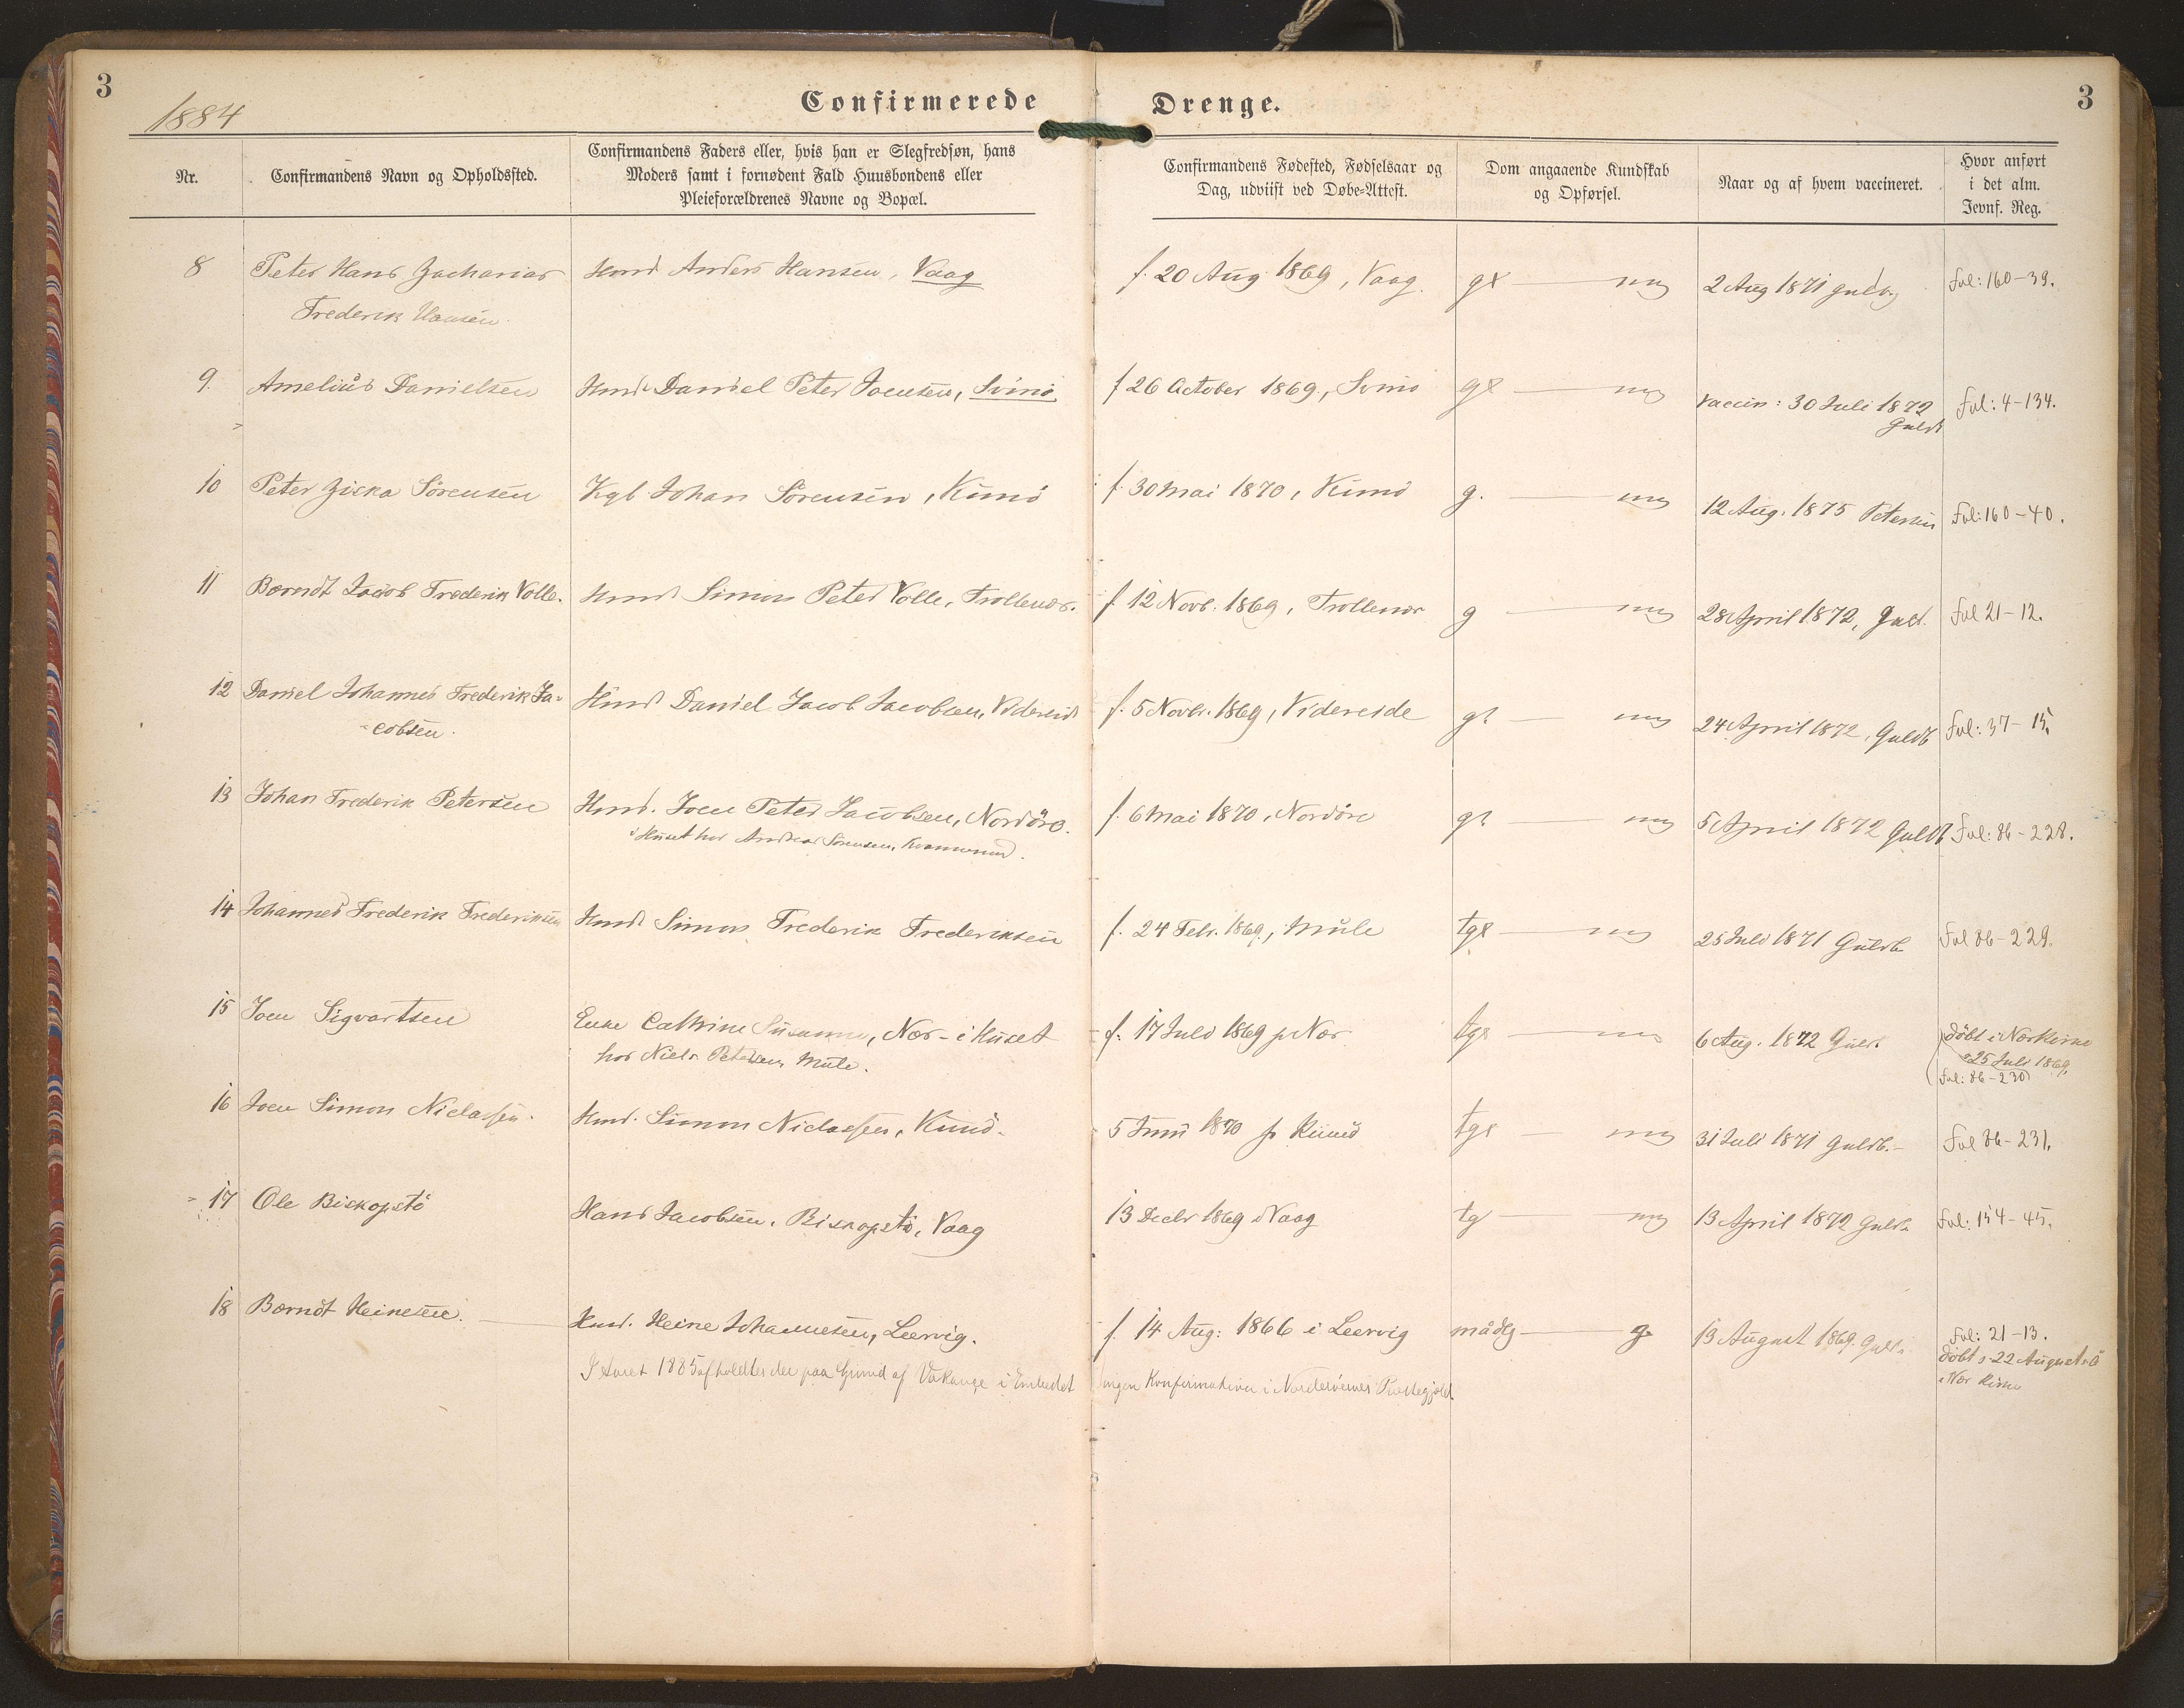 3
1884
Confirmerede Drenge.
3
Nr.
Confirmandens Navn og Opholdssted.
Confirmandens Faders eller, hvis han er Slegfredsøn, hans
Moders samt i fornødent Fald Huusbondens eller
Pleieforældrenes Navne og Bopæl.
Confirmandens Fødested, Fødselsaar og
Dag, udviist ved Døbe-Attest.
Dom angaaende Kundskab
og Opførsel.
Naar og af hvem vaccineret.
Hvor anført
i det alm.
Jevnf. Reg.
8 Peter Hans Zacharias Hmd Anders Hansen, Vaag f. 20 Aug 1869, Vaag. gx mg 2 Aug 1871 guldb Fol: 160-39.
Frederik Hansen
9. Amelius Danielsen Hmd Daniel Peter Joensen, Svinö f 26 October 1869, Svinö g mg vaccin: 30 Juli 1872 Fol: 4-134.
Guldb
10 Peter Ziska Sörensen Kgb Johan Sörensen, Kunö f. 30 Mai 1870, Kunö g. mg 12 Aug. 1875 Petersen Fol: 160-40.
11 Berndt Jacob Frederik Volle. Hmd Simon Peter Volle, Trollenæs. f 12 Novb. 1869, Trollenæs g mg 28 April 1872, Guld. Fol 21-12.
12 Daniel Johannes Frederik Ja- Hmd Daniel Jacob Jacobsen, Videreide f. 5 Novbr. 1869, Videreide g mg 24 April 1872, Guldb Fol: 37-15.
-cobsen.
13 Johan Frederik Petersen Hmd. Joen Peter Jacobsen, Nordöre. f. 6 Mai 1870, Nordöre g mg 5 April 1872 Guldb Fol: 86-228.
i Huset hos Andreas Sörensen, Kvannesund.
14 Johannes Frederik Frederiksen Hmd Simon Frederik Frederiksen f. 24 Febr. 1869, Mule tg mg 25 Juli 1871 Guldb Fol 86-229.
15 Joen Sigvartsen Enke Cathrine Susanne, Nær - i Huset f. 17 Juli 1869 p Nær tg 6 Aug. 1872 Guld. döbt i Nærkirke
hos Niels Petersen, Mule. 25 Juli 1869.
Fol: 86-230
16 Joen Simon Niclassen. Hmd. Simon Niclassen, Kunö. 5 Juni 1870 p Kunö tg mg 31 Juli 1871 Guldb. Fol 86-231.
17 Ole Biskopstö Hans Jacobsen, Biskopstö, Vaag 13 Decbr 1869 i Vaag tg mg 13 April 1872 Guldb Fol: 154-45.
18 Berndt Heinesen. Hmd. Heine Johannesen, Leervig. f. 14 Aug: 1866 i Leervig mådlg g 13 August 1869. Guld. Fol: 21-13.
döbt 22 August
i Nær Kirke
I Aaret 1885 afholdtes der paa Grund af Vakance i Embedet ingen Konfirmation i Norderöernes Præstegjæld.